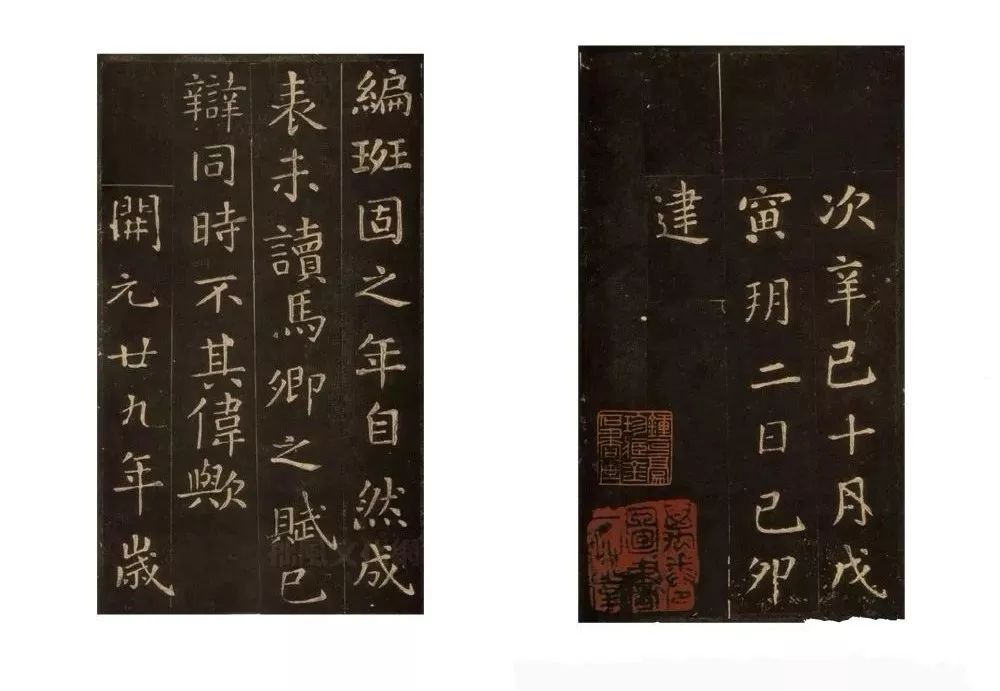 編班固之年自然成
表未讀馬卿之賦已
辯同時不其偉歟
開元廿九年歲
次辛巳十月戊
寅朔二日己卯
建